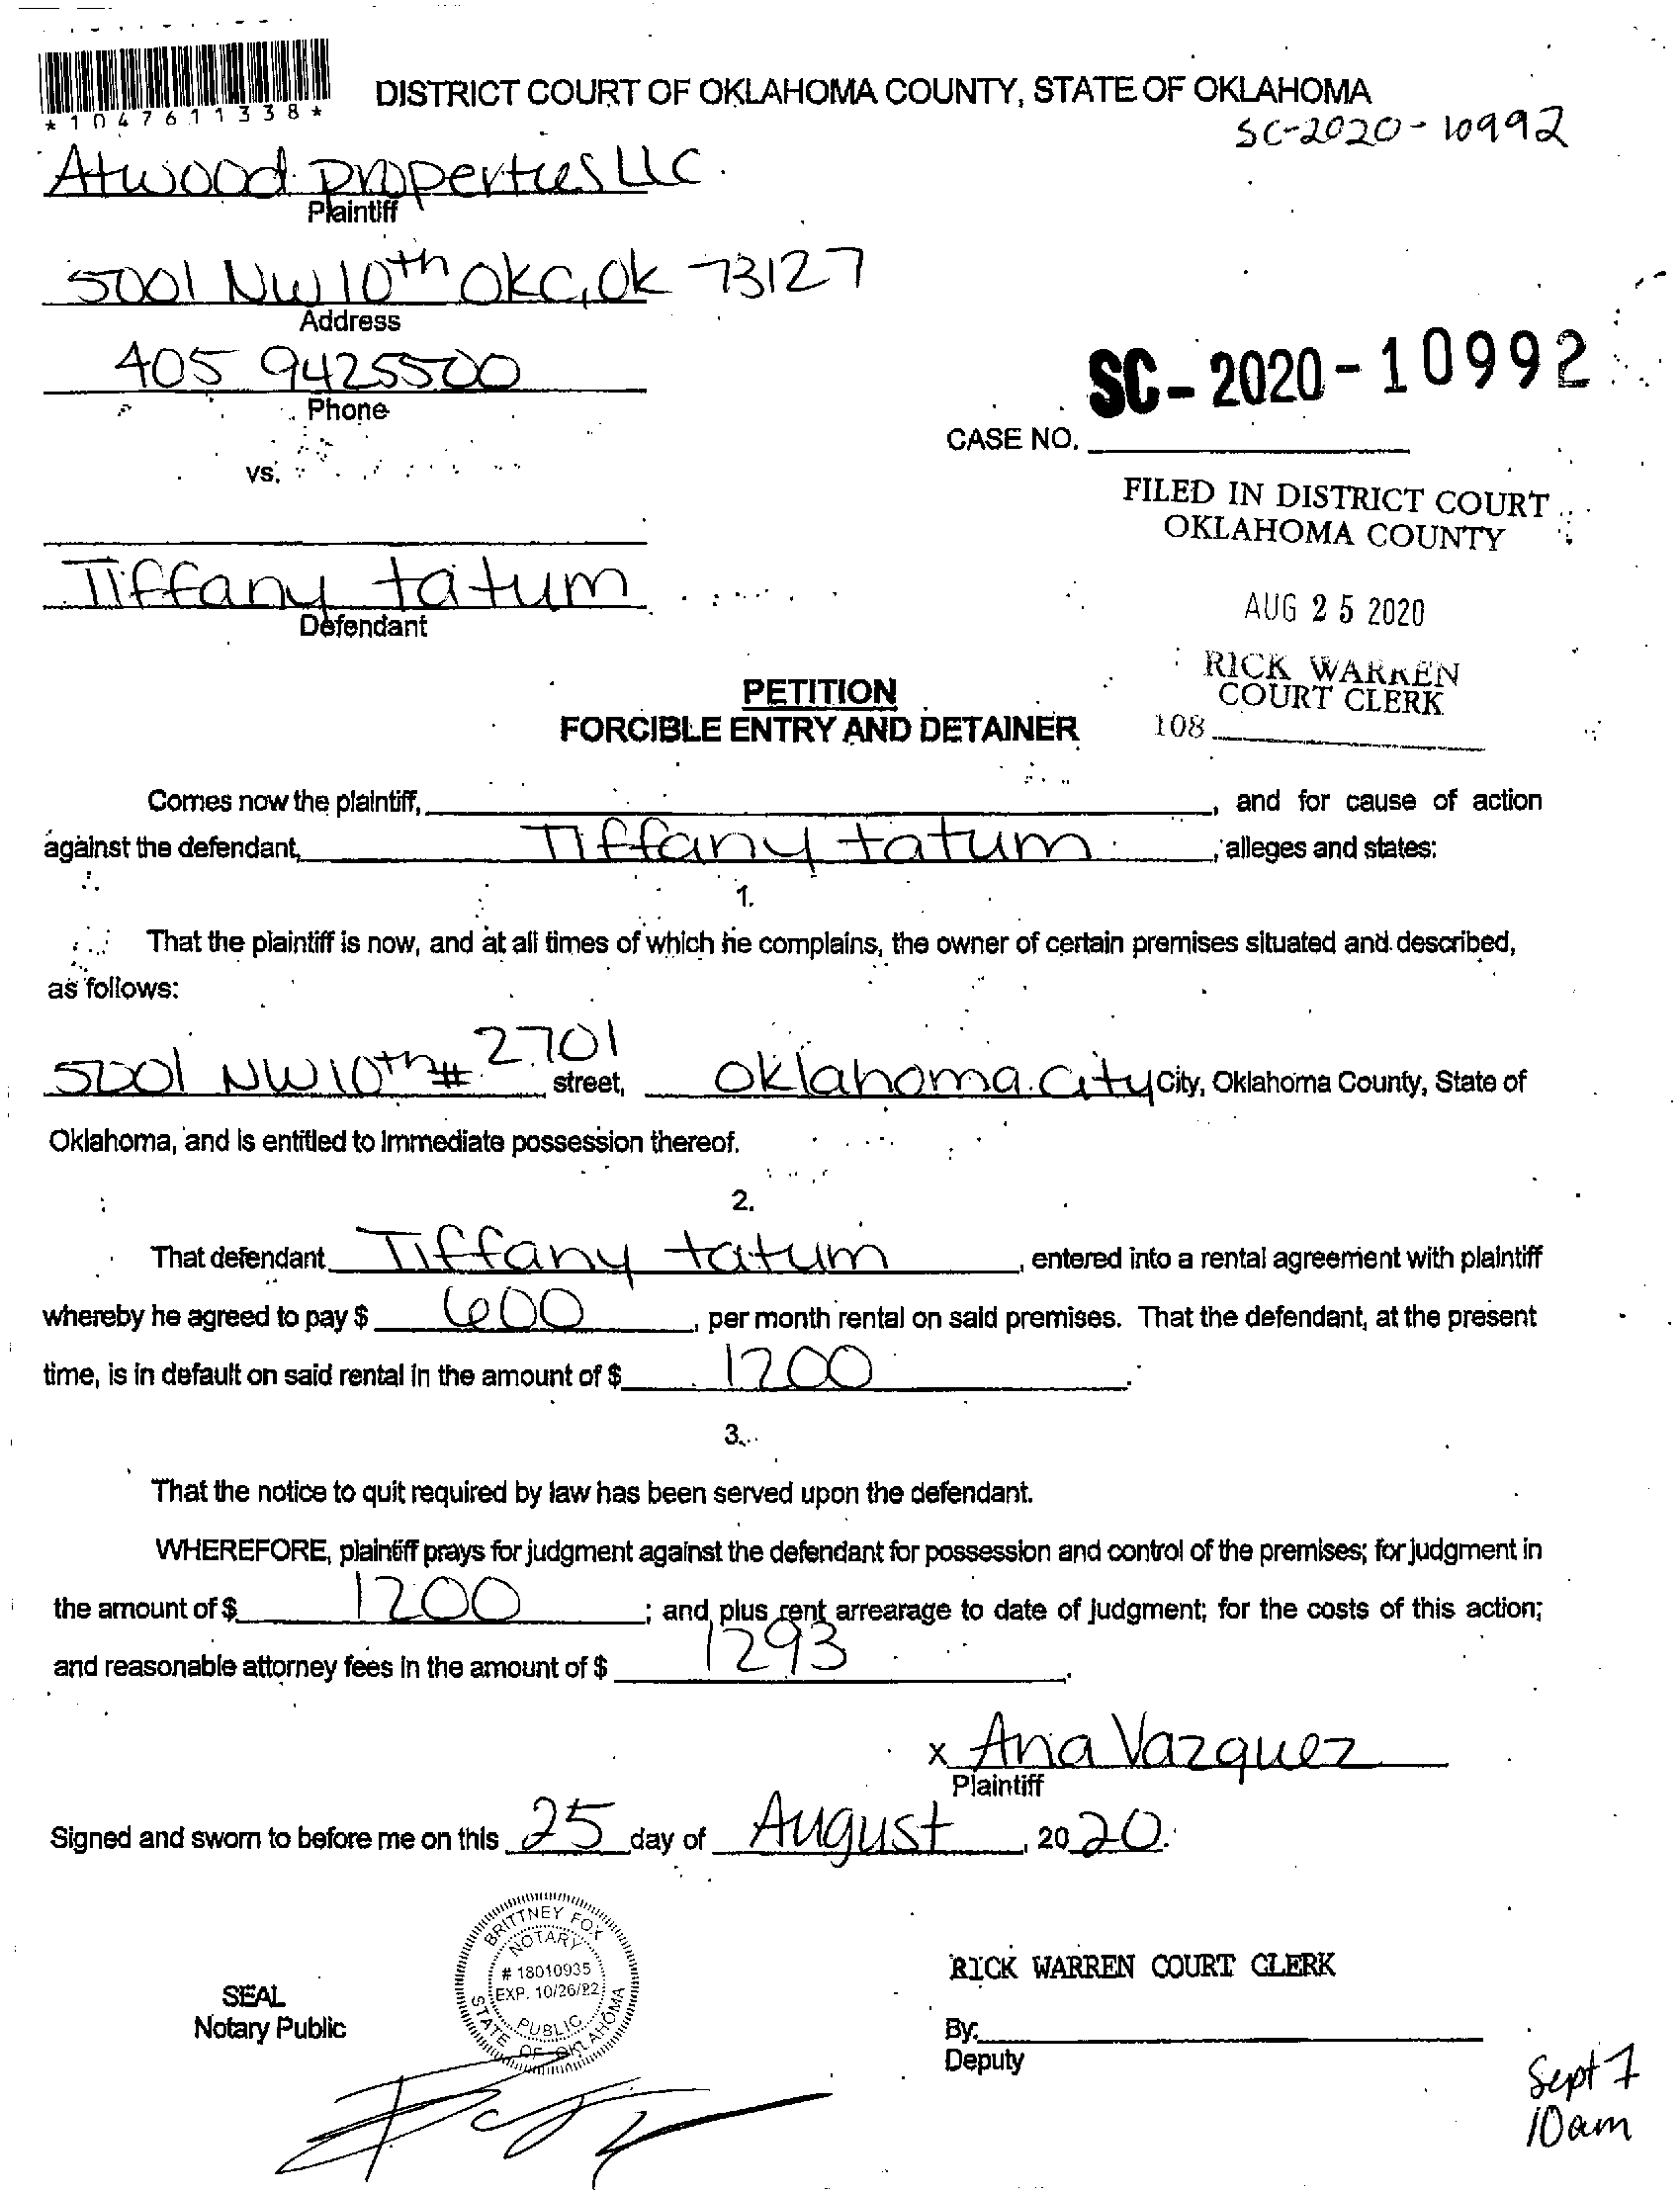 *1047611338*
DISTRICT COURT OF OKLAHOMA COUNTY, STATE OF OKLAHOMA
SC-2020-10992
Atwood properties LLC
Plaintiff
5001 NW 10th OKC, OK 73127
Address
405 9425500
Phone
SC-2020-10992
CASE NO.
vs.
FILED IN DISTRICT COURT
OKLAHOMA COUNTY
Tiffany tatum
Defendant
AUG 25 2020
RICK WARREN
COURT CLERK
108
PETITION
FORCIBLE ENTRY AND DETAINER
Comes now the plaintiff, , and for cause of action
against the defendant, Tiffany tatum, alleges and states:
1.
That the plaintiff is now, and at all times of which he complains, the owner of certain premises situated and described,
as follows:
5001 NW 10th # 2701 street, Oklahoma City City, Oklahoma County, State of
Oklahoma, and is entitled to immediate possession thereof.
2.
That defendant Tiffany tatum, entered into a rental agreement with plaintiff
whereby he agreed to pay $ 600, per month rental on said premises. That the defendant, at the present
time, is in default on said rental in the amount of $ 1200.
3.
That the notice to quit required by law has been served upon the defendant.
WHEREFORE, plaintiff prays for judgment against the defendant for possession and control of the premises; for judgment in
the amount of $ 1200; and plus rent arrearage to date of judgment; for the costs of this action;
and reasonable attorney fees in the amount of $ 1293.
x Ana Vazquez
Plaintiff
Signed and sworn to before me on this 25 day of August, 2020.
BRITTNEY FOX
NOTARY
# 18010935
EXP. 10/26/22
PUBLIC
STATE OF OKLAHOMA
SEAL
Notary Public
RICK WARREN COURT CLERK
By:
Deputy
Sept 7
10am